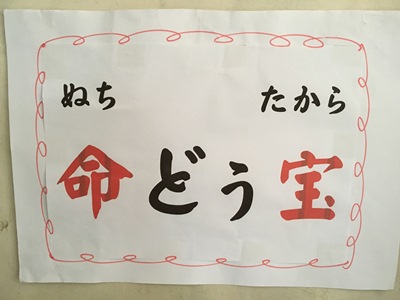 ぬち たから
命どう宝